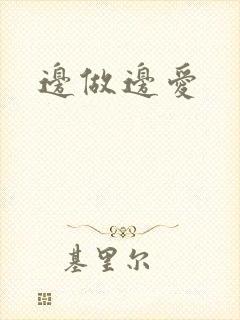 邊做邊愛
基里尔